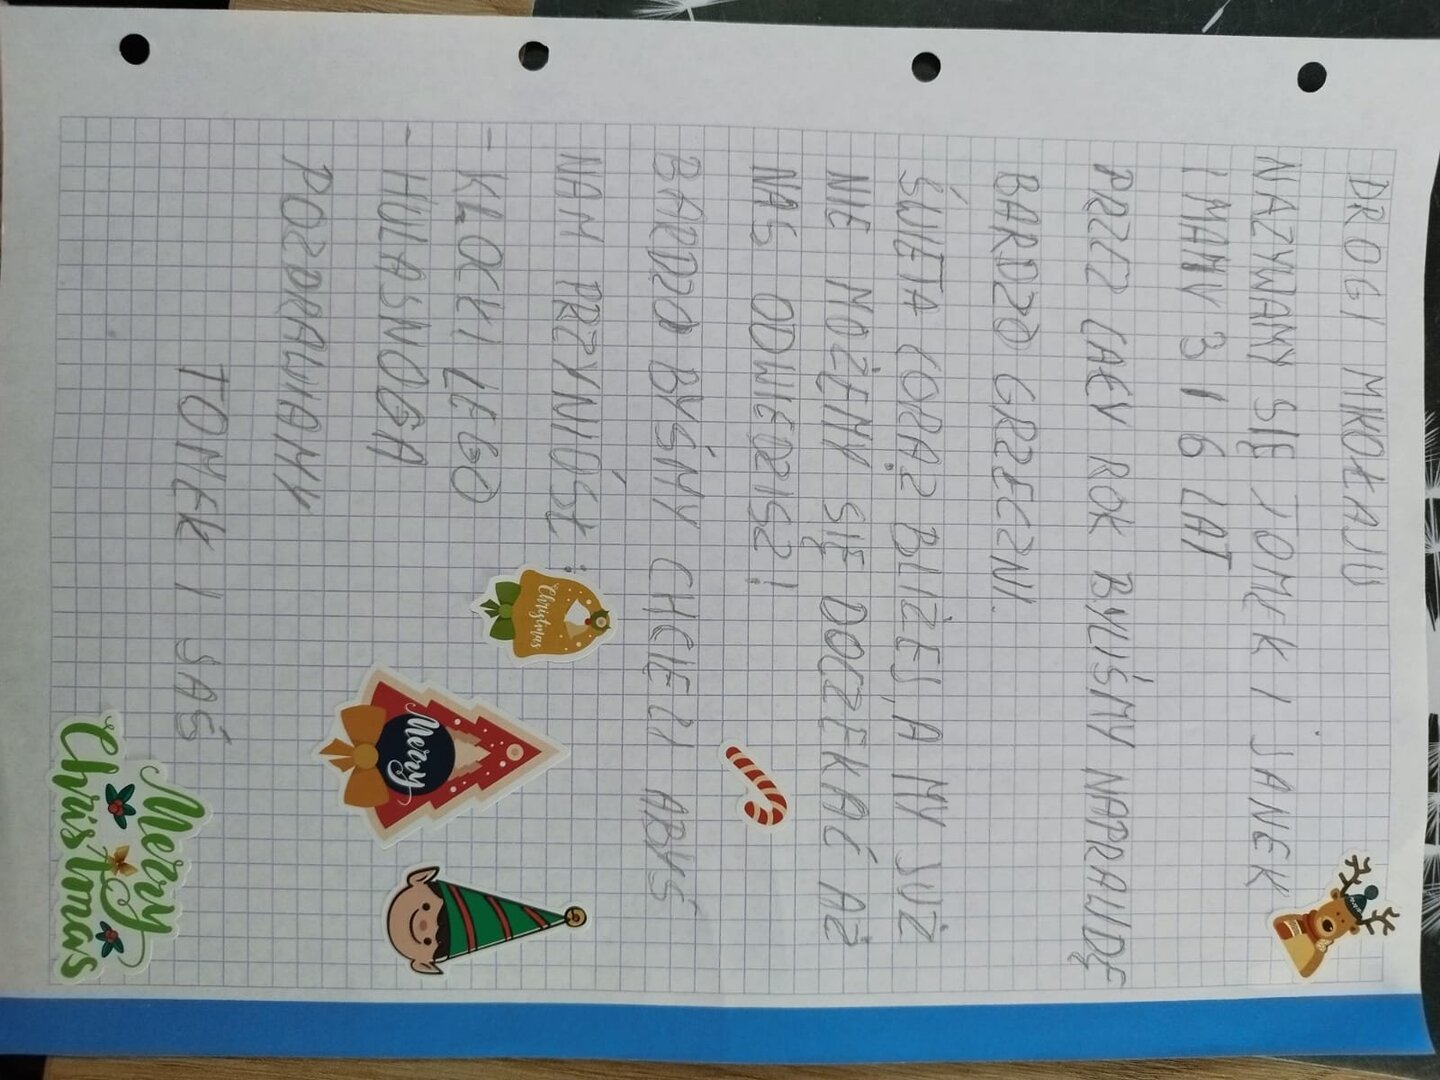 DROGI MIKOŁAJU
NAZYWAMY SIĘ TOMEK I JANEK
I MAMY 3 I 6 LAT
PRZEZ CAŁY ROK BYLIŚMY NAPRAWDĘ
BARDZO GRZECZNI.
ŚWIĘTA CORAZ BLIŻEJ, A MY JUŻ
NIE MOŻEMY SIĘ DOCZEKAĆ AŻ
NAS ODWIEDZISZ!
BARDZO BYŚMY CHCIELI ABYŚ
NAM PRZYNIÓSŁ:
- KLOCKI LEGO
- HULAJNOGA
POZDRAWIAMY
TOMEK I JAŚ
Christmas
Merry
Merry
Christmas